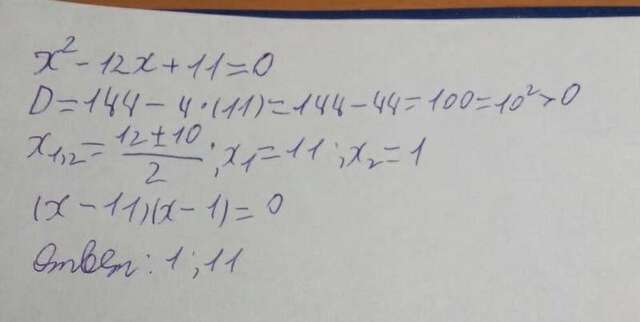 x² - 12x + 11 = 0
D = 144 - 4 · (11) = 144 - 44 = 100 = 10² > 0
x₁,₂ = (12 ± 10)/2 ; x₁ = 11 ; x₂ = 1
(x - 11)(x - 1) = 0
Ответ: 1 ; 11